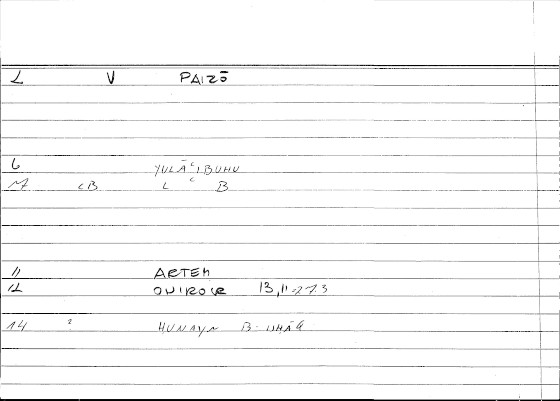 L V PAIZŌ
6 YULĀʿIBUHU
M cB L ʿ B
11 ARTEM
12 ONIROCR 13,11-273
14 HUNAYN B. ISḤĀQ